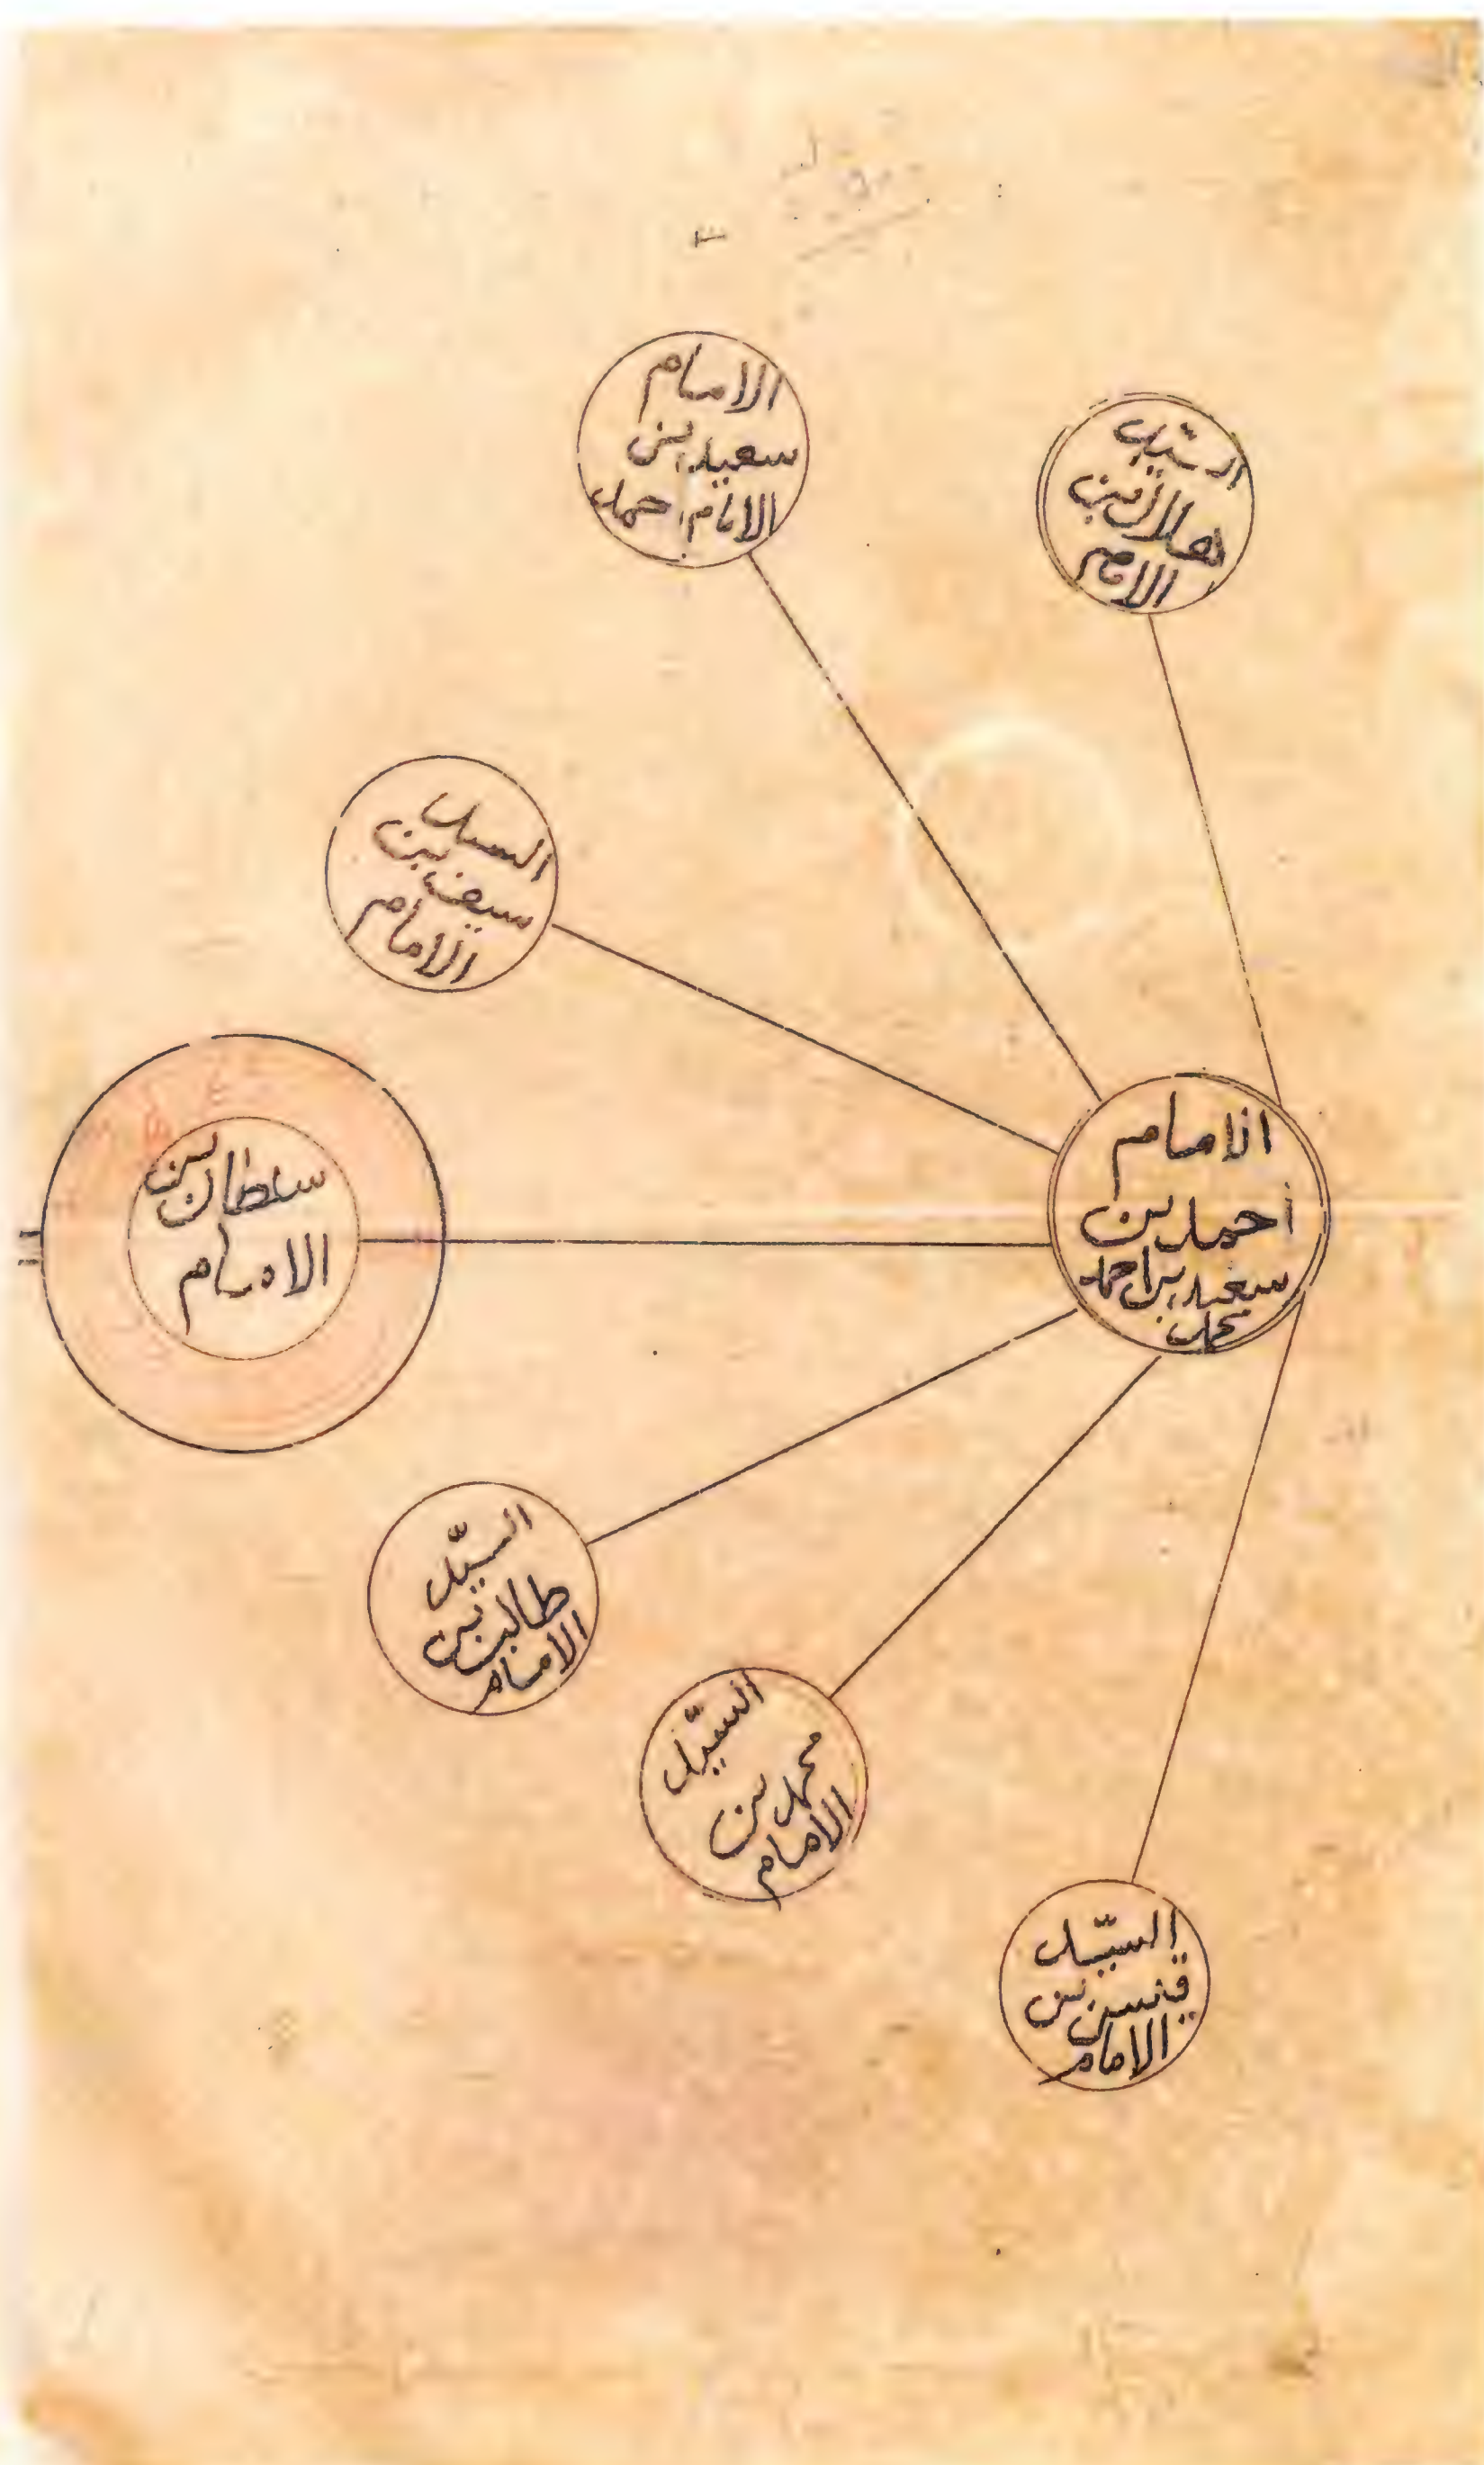 السيد
هلال بن
الامام
الامام
سعيد بن
الامام احمد
السيد
سيف بن
الامام
الامام
أحمد بن
سعيد بن احمد
محمد
سلطان بن
الامام
السيّد
طالب بن
الامام
السيّد
محمد بن
الامام
السيّد
قيس بن
الامام